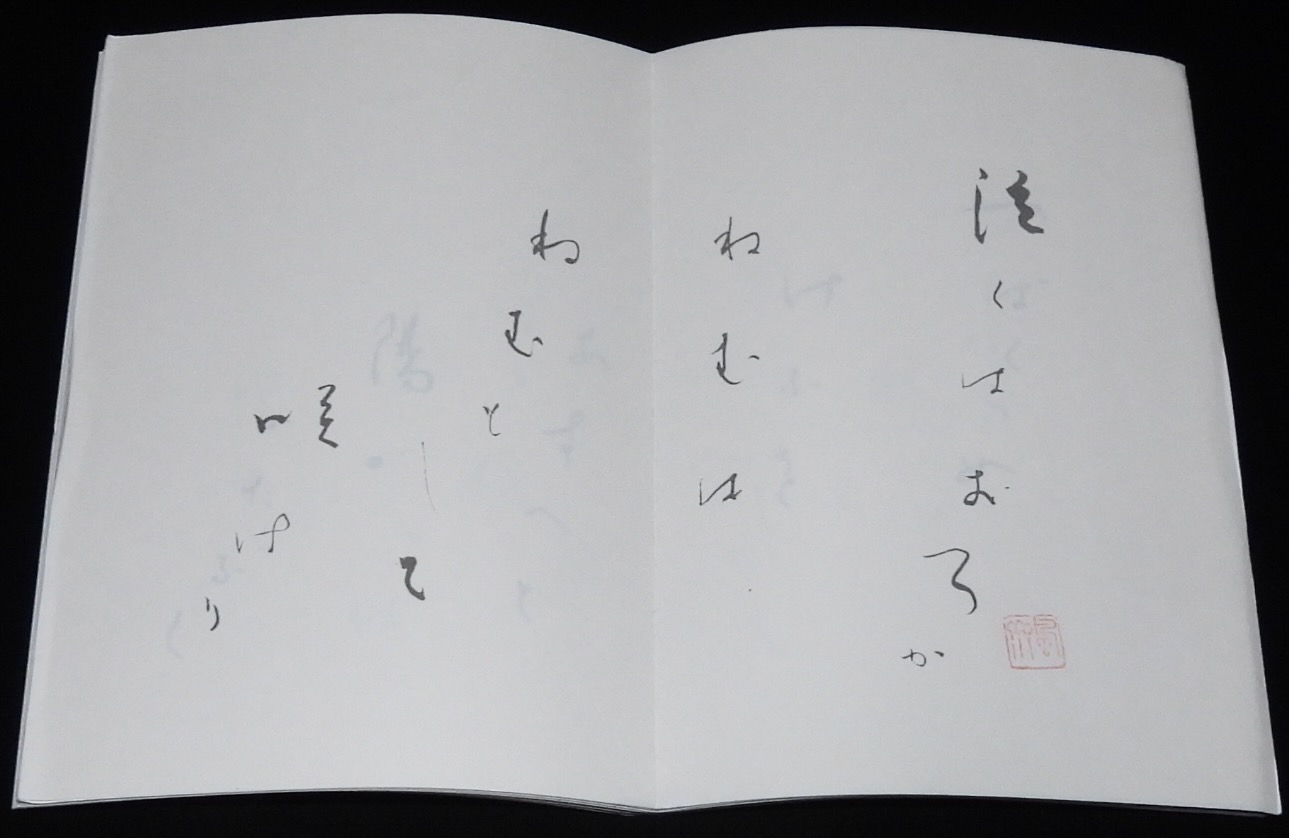 泣くはおろか
ねむは
ねむとして
咲けり